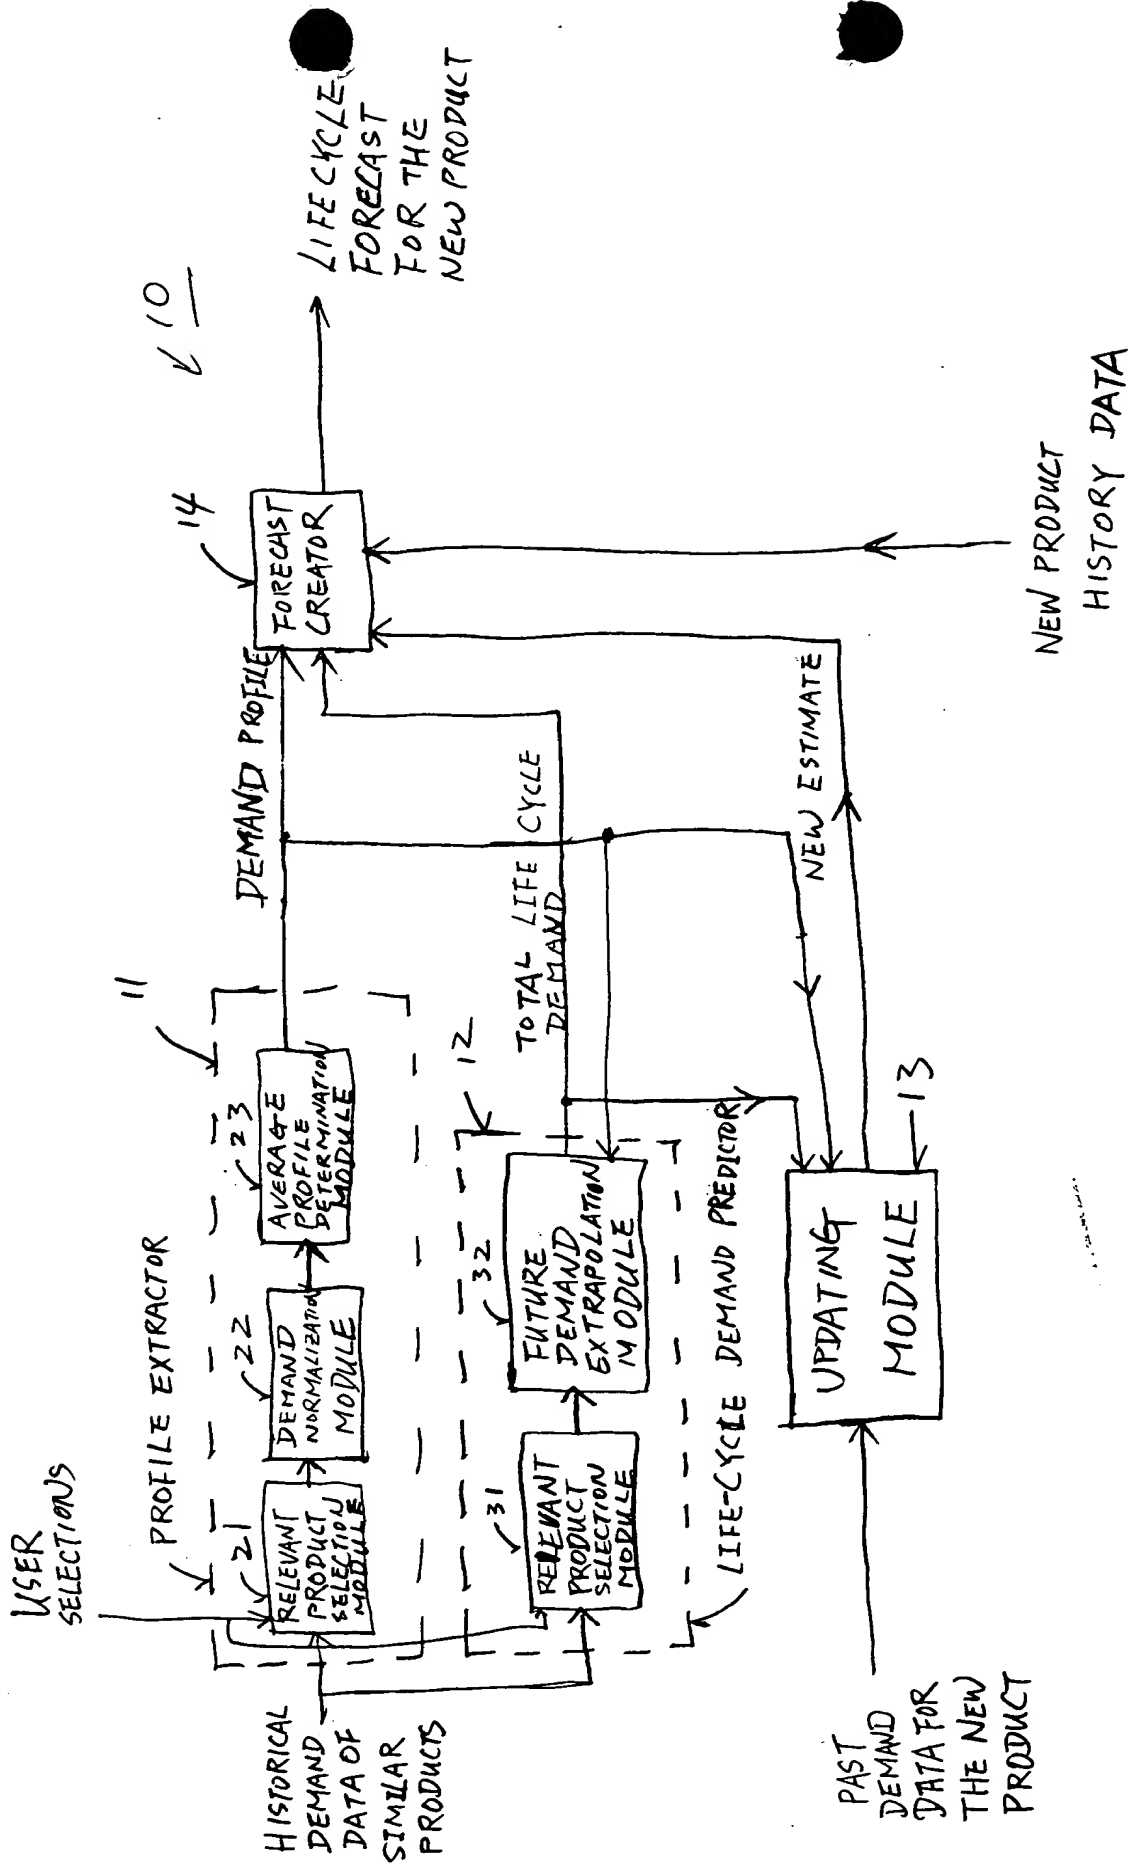 USER
SELECTIONS
PROFILE EXTRACTOR
11
10
21
RELEVANT
PRODUCT
SELECTION
MODULE
22
DEMAND
NORMALIZATION
MODULE
23
AVERAGE
PROFILE
DETERMINATION
MODULE
DEMAND PROFILE
14
FORECAST
CREATOR
LIFECYCLE
FORECAST
FOR THE
NEW PRODUCT
HISTORICAL
DEMAND
DATA OF
SIMILAR
PRODUCTS
31
RELEVANT
PRODUCT
SELECTION
MODULE
32
FUTURE
DEMAND
EXTRAPOLATION
MODULE
12
TOTAL LIFE CYCLE
DEMAND
LIFE-CYCLE DEMAND PREDICTOR
NEW ESTIMATE
UPDATING
MODULE
13
PAST
DEMAND
DATA FOR
THE NEW
PRODUCT
NEW PRODUCT
HISTORY DATA